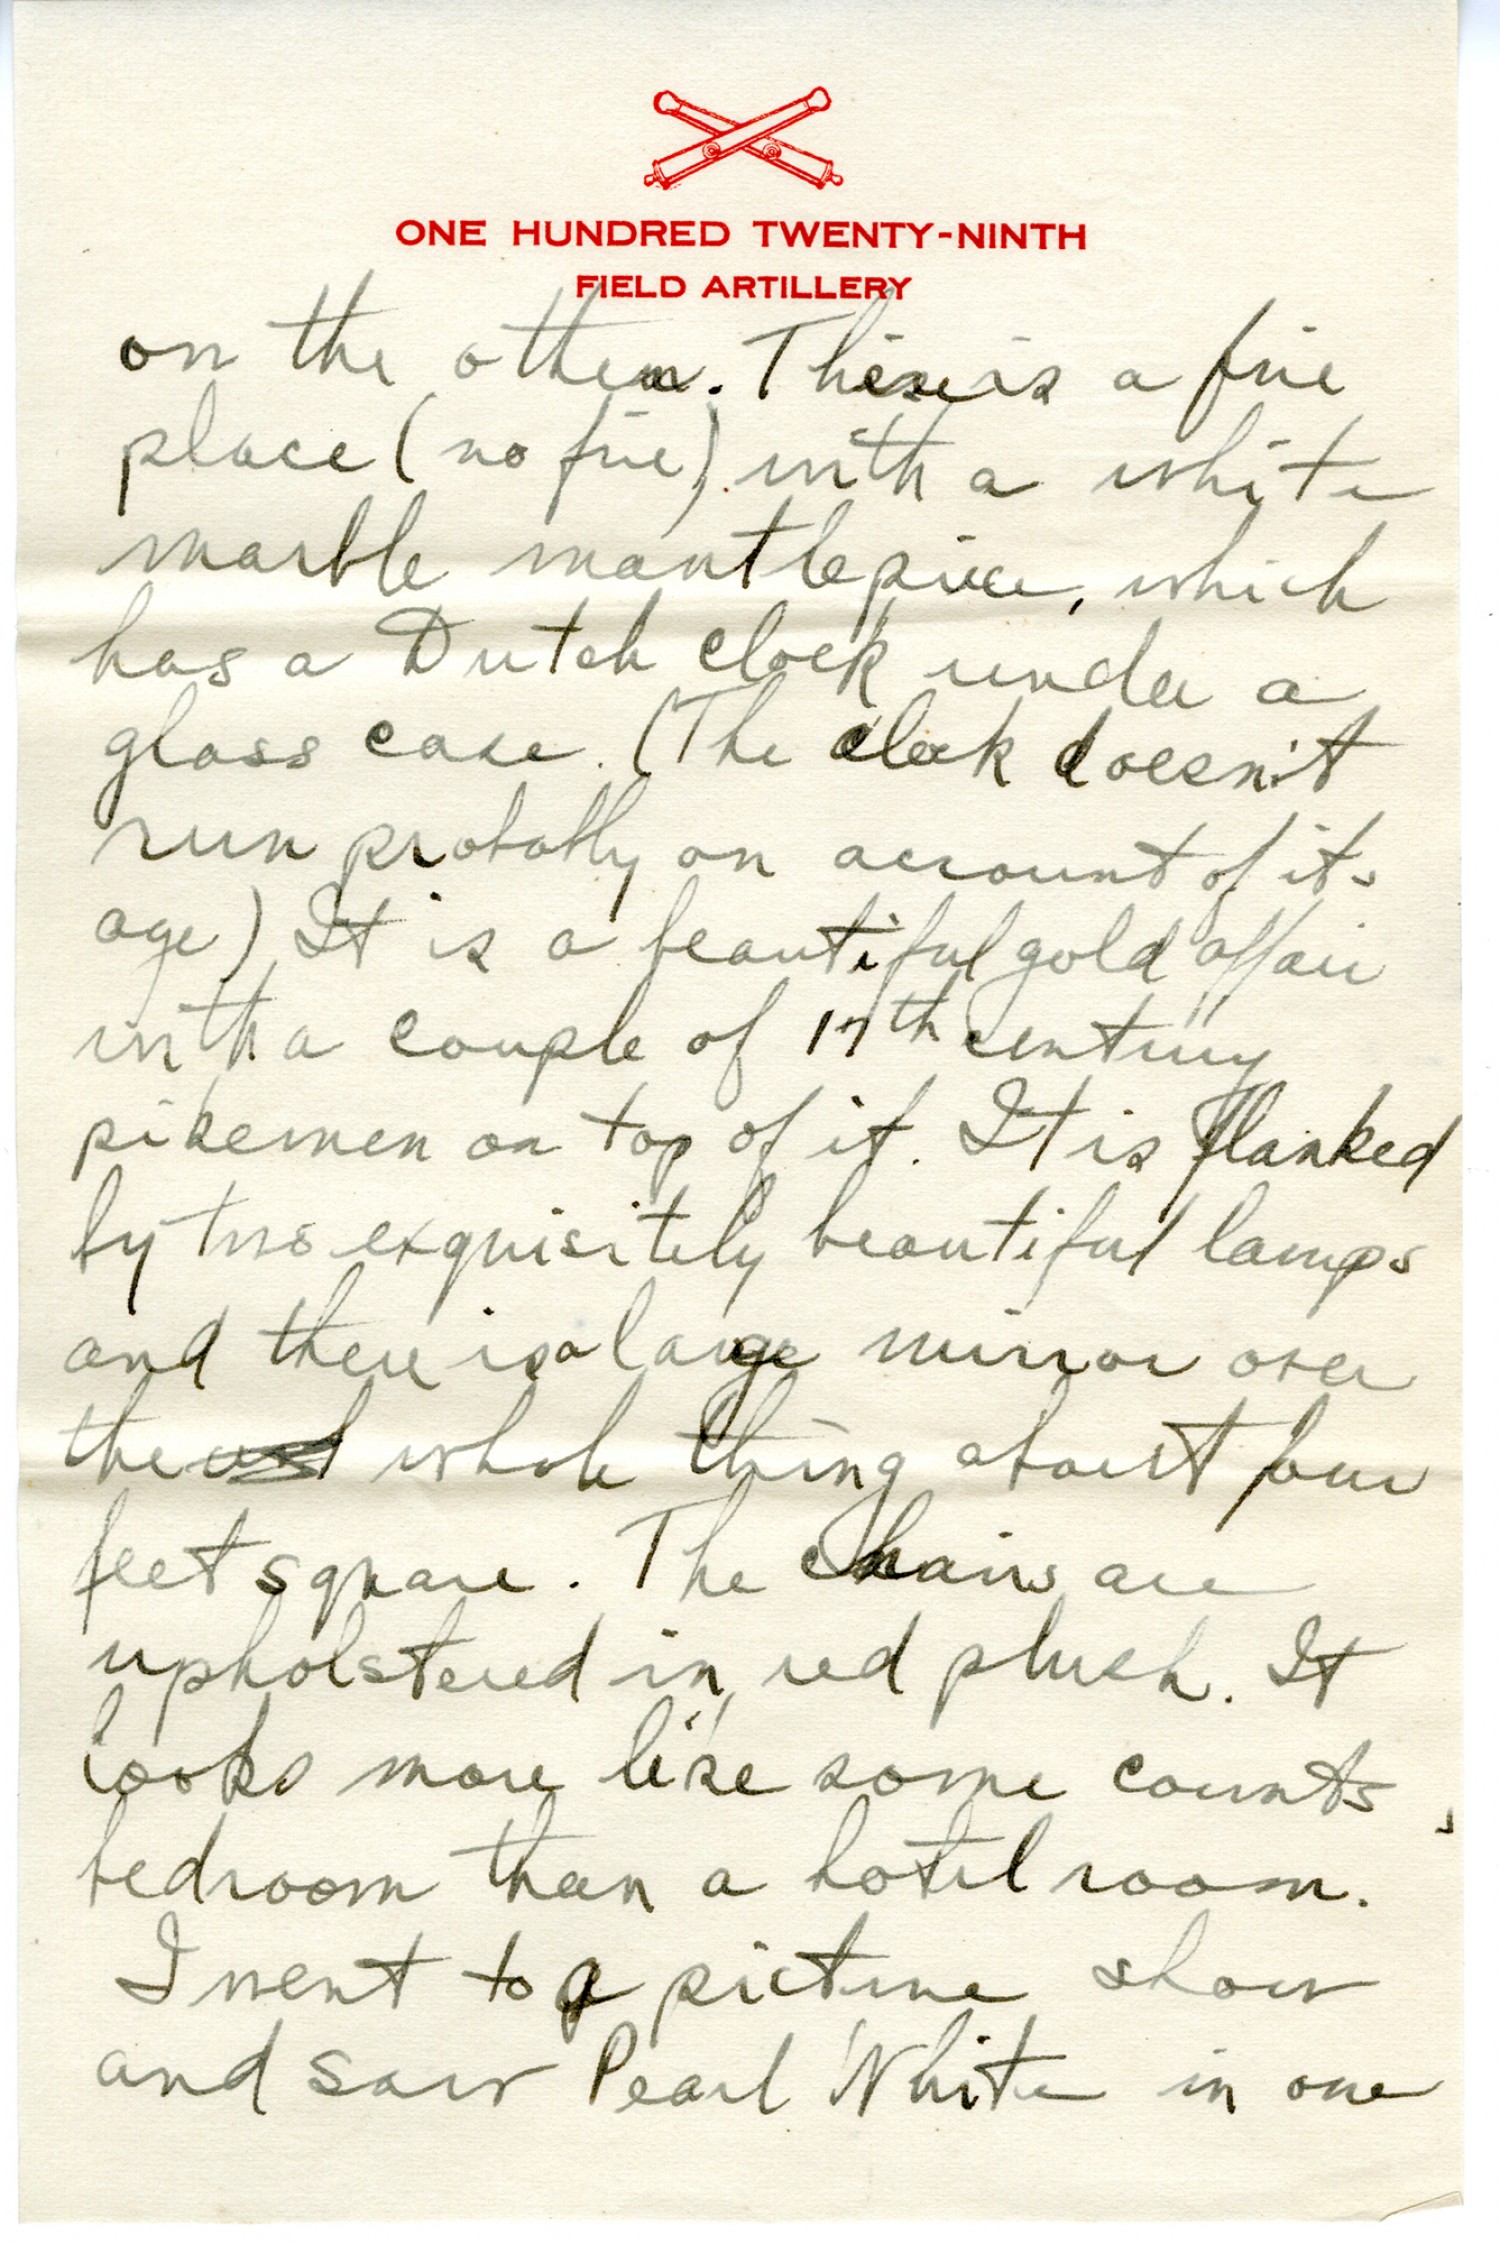 ONE HUNDRED TWENTY-NINTH
FIELD ARTILLERY
on the other. There is a fire
place (no fire) with a white
marble mantlepiece, which
has a Dutch clock under a
glass case. (The clock doesn't
run probably on account of its
age) It is a beautiful gold affair
with a couple of 17th century
pikemen on top of it. It is flanked
by two exquisitely beautiful lamps
and there is a large mirror over
the whole thing about four
feet square. The chairs are
upholstered in red plush. It
looks more like some counts
bedroom than a hotel room.
I went to a picture show
and saw Pearl White in one